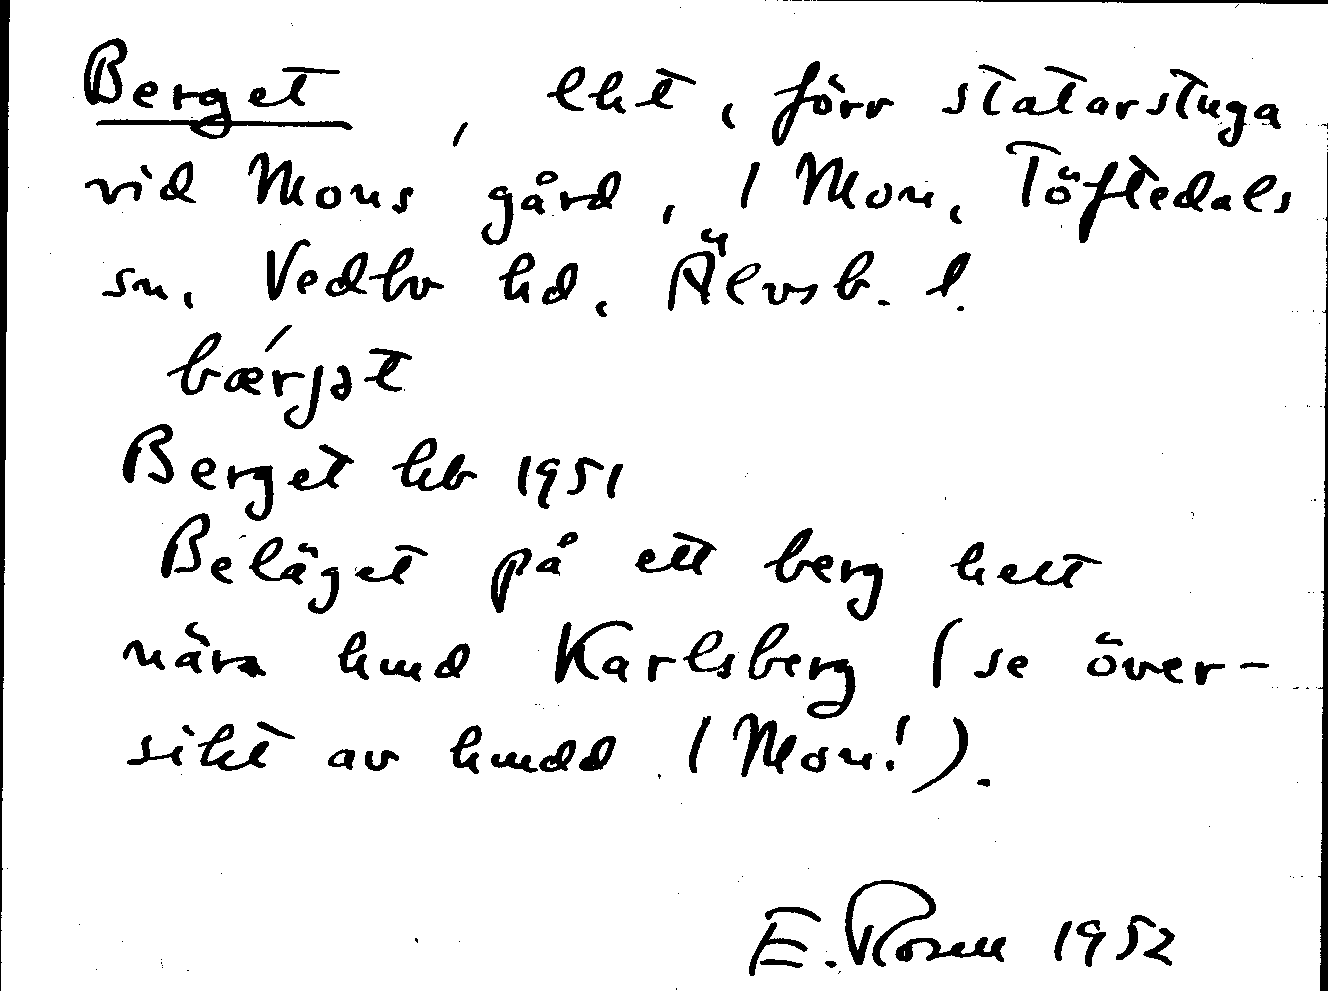 Berget, lht, förr statarstuga
vid Mons gård, 1 Mon, Töftedals
sn, Vedbo hd, Älvsb. l.
bæŕjət
Berget kb 1951
Beläget på ett berg helt
nära hmd Karlsberg (se över-
sikt av hmdd 1 Mon!).
E. Rosen 1952